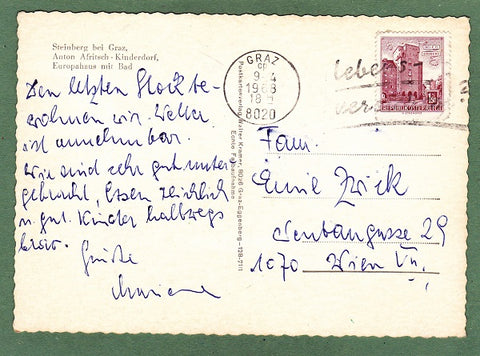 Steinberg bei Graz,
Anton Afritsch - Kinderdorf,
Europahaus mit Bad
Den letzten Stock be-
wohnen wir. Wetter
ist annehmbar.
Wir sind sehr gut unter
gebracht, Essen reichlich
u. gut. Kinder halbwegs
brav.
Grüße
Mariane
Postkartenverlag Walter Kramer, 8020 Graz-Eggenberg - 128-211
Echte Fotoaufnahme
GRAZ
9.-4
1968
18
8020
lebens-
REPUBLIK ÖSTERREICH
Fam.
Zwick
Neubaugasse 29
1070 Wien VII.